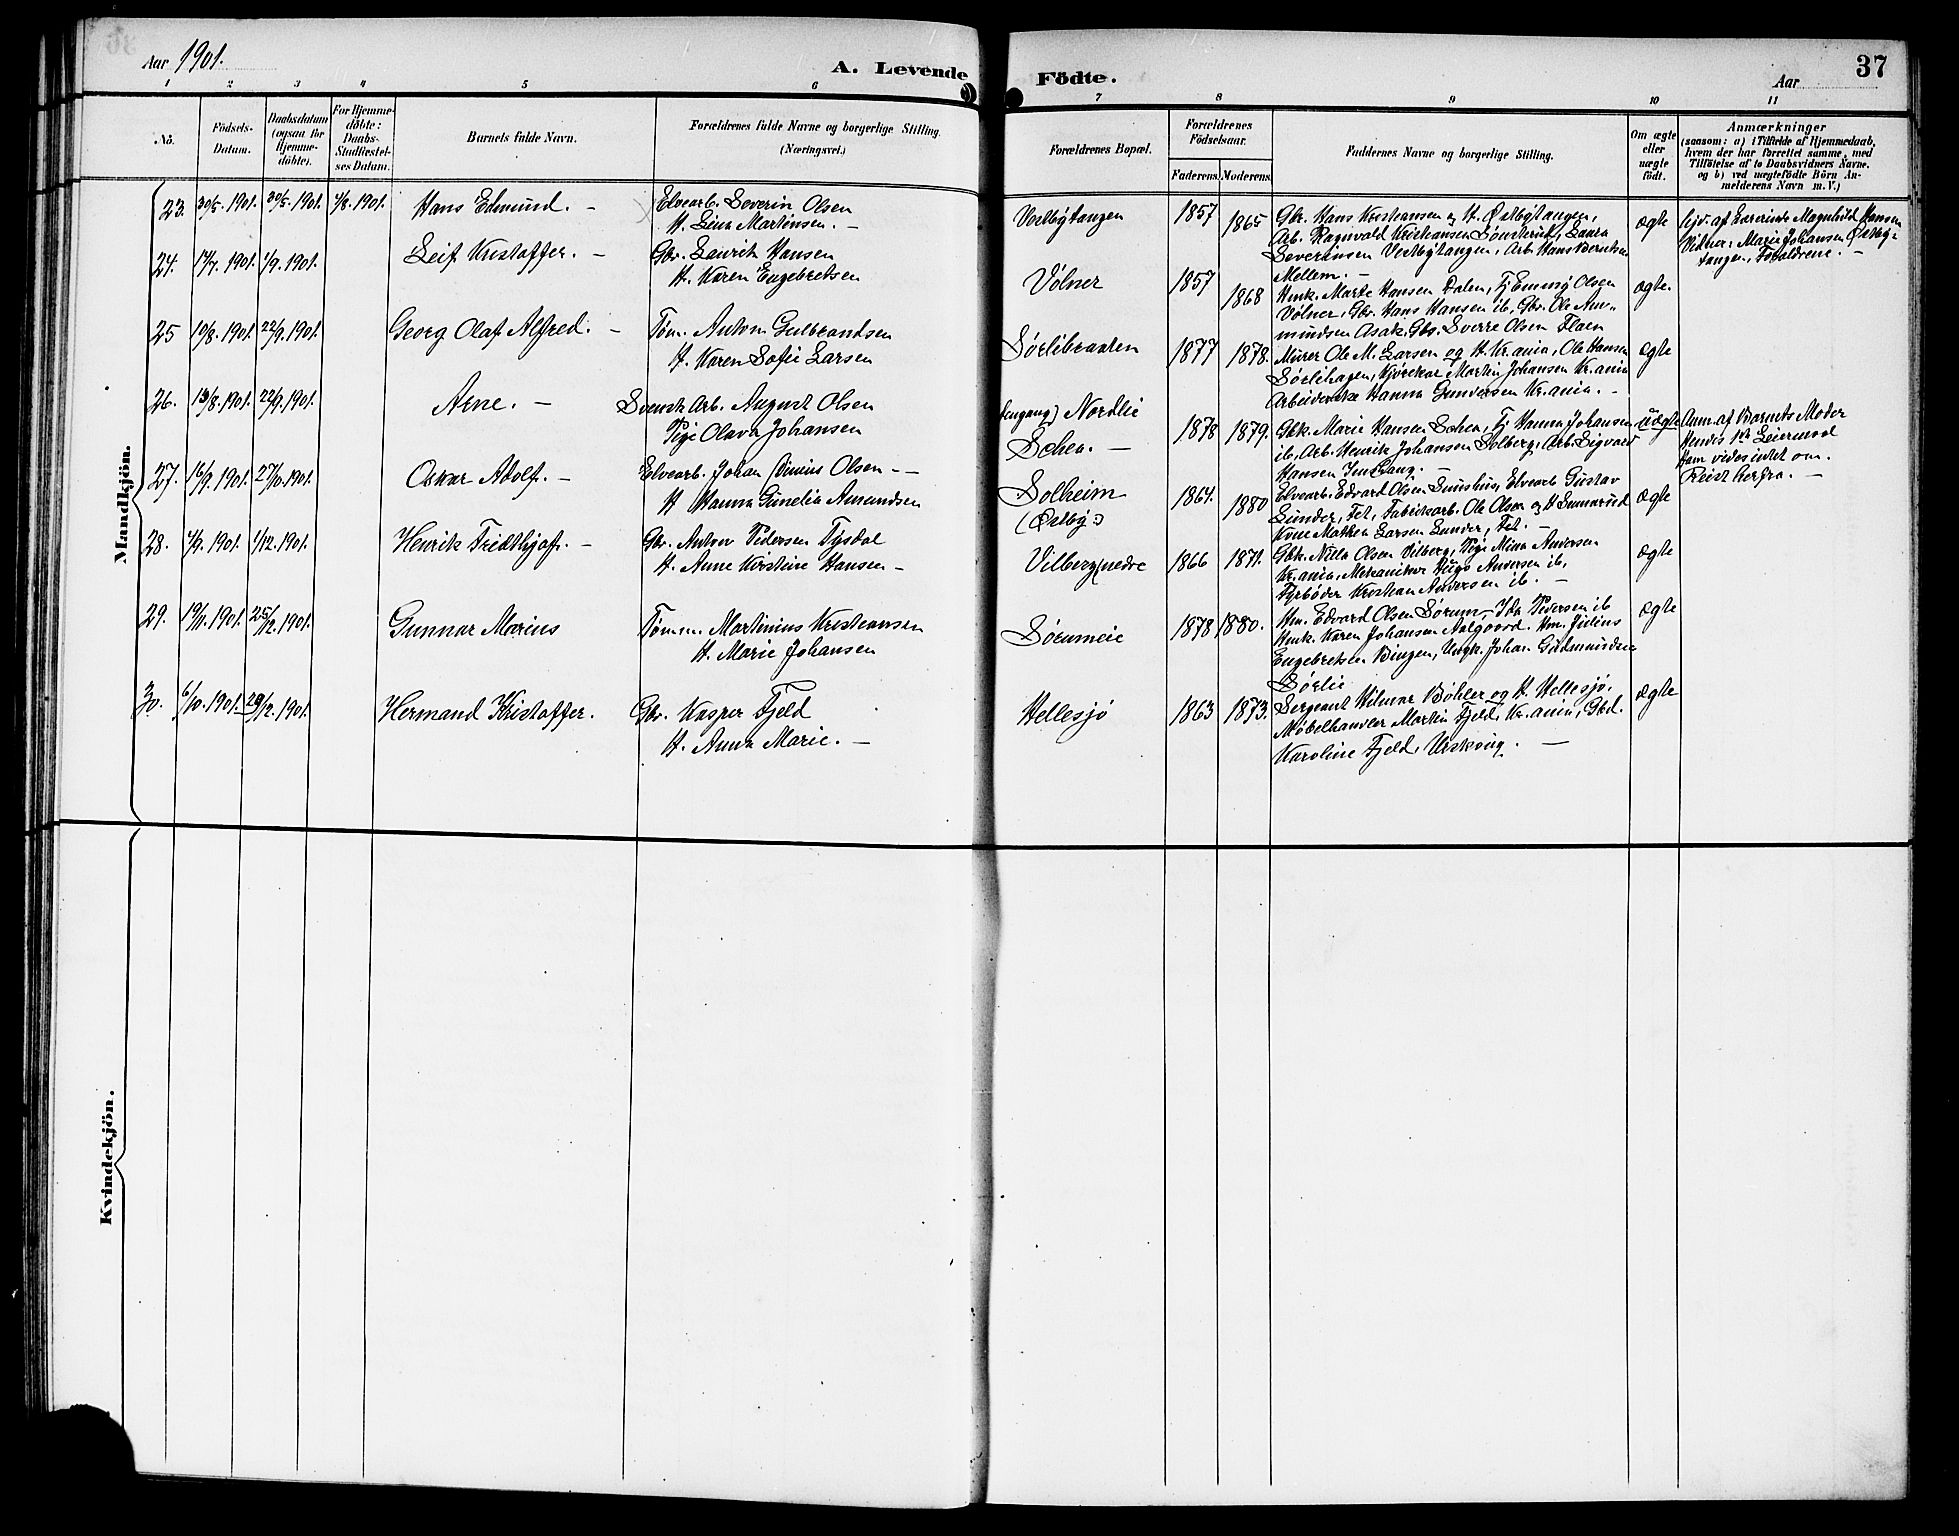 Aar 1901.
A. Levende
Födte.
Aar
37
1 2 3 4 5 6
7 8 9 10 11
No.
Födsels-
Datum.
Daabsdatum
(ogsaa for
Hjemme-
döbte).
For Hjemme-
döbte:
Daabs-
Stadfæstel-
ses Datum.
Barnets fulde Navn.
Forældrenes fulde Navne og borgerlige Stilling.
(Næringsvei.)
Forældrenes Bopæl.
Forældrenes
Födselsaar.
Faderens.
Moderens.
Faddernes Navne og borgerlige Stilling.
Om ægte
eller
uægte
födt.
Anmærkninger
(saasom: a) i Tilfælde af Hjemmedaab,
hvem der har forrettet samme, med
Tilföielse af to Daabsvidners Navne.
og b) ved uægtefödte Börn An-
melderens Navn m. V.)
Mandkjön.
23. 30/5. 1901. 30/5. 1901. 4/8. 1901.
Hans Edmund. –
Elvearb. Severin Olsen
H. Lina Martinsen. –
Vestbytangen
1857 1865
Gbr. Hans Kristiansen og H. Østbytangen,
Arb. Ragnvald Kristiansen Sønsterud, Laura
Severinsen Vestbytangen, Arb. Hans Berntsen
Mellem. –
ægte
Vidner: Marie Johansen Østby-
tangen, Forældrene. –
24. 17/7. 1901. 1/9. 1901.
Leif Kristoffer. –
Gbr. Laurits Hansen
H. Karen Engebretsen
Vølner
1857 1868
Hmk. Marte Hansen Dalen, Tj Emmy Olsen
Vølner, Gbs. Hans Hansen ib, Gbr. Ole Am-
mundsen Asak, Gbs. Sverre Olsen Flaen
ægte.
25 10/8. 1901. 22/9. 1901.
Georg Olaf Alfred. –
Tøm. Anton Gulbrandsen
H. Karen Sofie Larsen
Sørlibraaten
1877 1878.
Murer Ole M. Larsen og H. Kr.ania, Ole Hansen
Sørlihagen, Kjørekar Martin Johansen Kr.ania
Arbeiderske Hanna Gundersen Kr.ania. –
ægte
26. 13/8. 1901. 22/9. 1901.
Arne. –
Svensk Arb. August Olsen
Pige Olava Johansen
Nordlie
1878 1879.
Gbk. Marie Hansen Schea, Tj Hanna Johansen
ib, Arb. Henrik Johansen Solberg, Arb. Sigvard
Hansen
uægte
Anm. af Barnets Moder
Hendes 1ste Leiermaal
Ham vides intet om.
Reist herfra. –
27. 16/9. 1901. 27/10. 1901.
Oskar Adolf. –
Elvearb. Johan Dinius Olsen – –
H. Hanna Gunelia Amundsen
Solheim
(Østby)
1864. 1880
Elvearb. Edvard Olsen, Elvearb Gustav
Lunder, Fet, Fabrikarb. Ole Olsen og H
Kone Mathea Larsen Lunder, Fet. –
ægte
28. 4/9. 1901. 1/12. 1901.
Henrik Fridthjof. –
Gbr. Anton Pedersen Tysdal
H. Anne Kirstine Hansen –
Vilberg nedre
1866 1871.
Gbk. Nilla Olsen Vilberg, Pige Mina Andersen
Kr.ania, Mekaniker Hugo Andersen ib,
Fyrbøder Kristian Andersen ib. –
ægte
29. 19/11. 1901. 25/12. 1901.
Gunnar Marius
Tømm. Martinius Kristiansen
H. Marie Johansen
Sørumeie
1878 1880.
Hm. Edvard Olsen Sørum, Ida Pedersen ib
Hmk. Karen Johansen Aalgaard. Hm. Julius
Engebretsen Bingen, Ungk. Johan Gudmundsen
Sørlie
ægte
30. 6/10. 1901. 29/12. 1901.
Hermand Kristoffer.
Gbr. Kasper Fjeld
H. Anna Marie. –
Hellesjø
1863 1873.
Sergeant Hilmar Bøhler og H. Hellesjø,
Møbelhandler Martin Fjeld, Kr.ania, Gbd.
Karoline Fjeld, Urskoug. –
ægte
Kvindekjön.